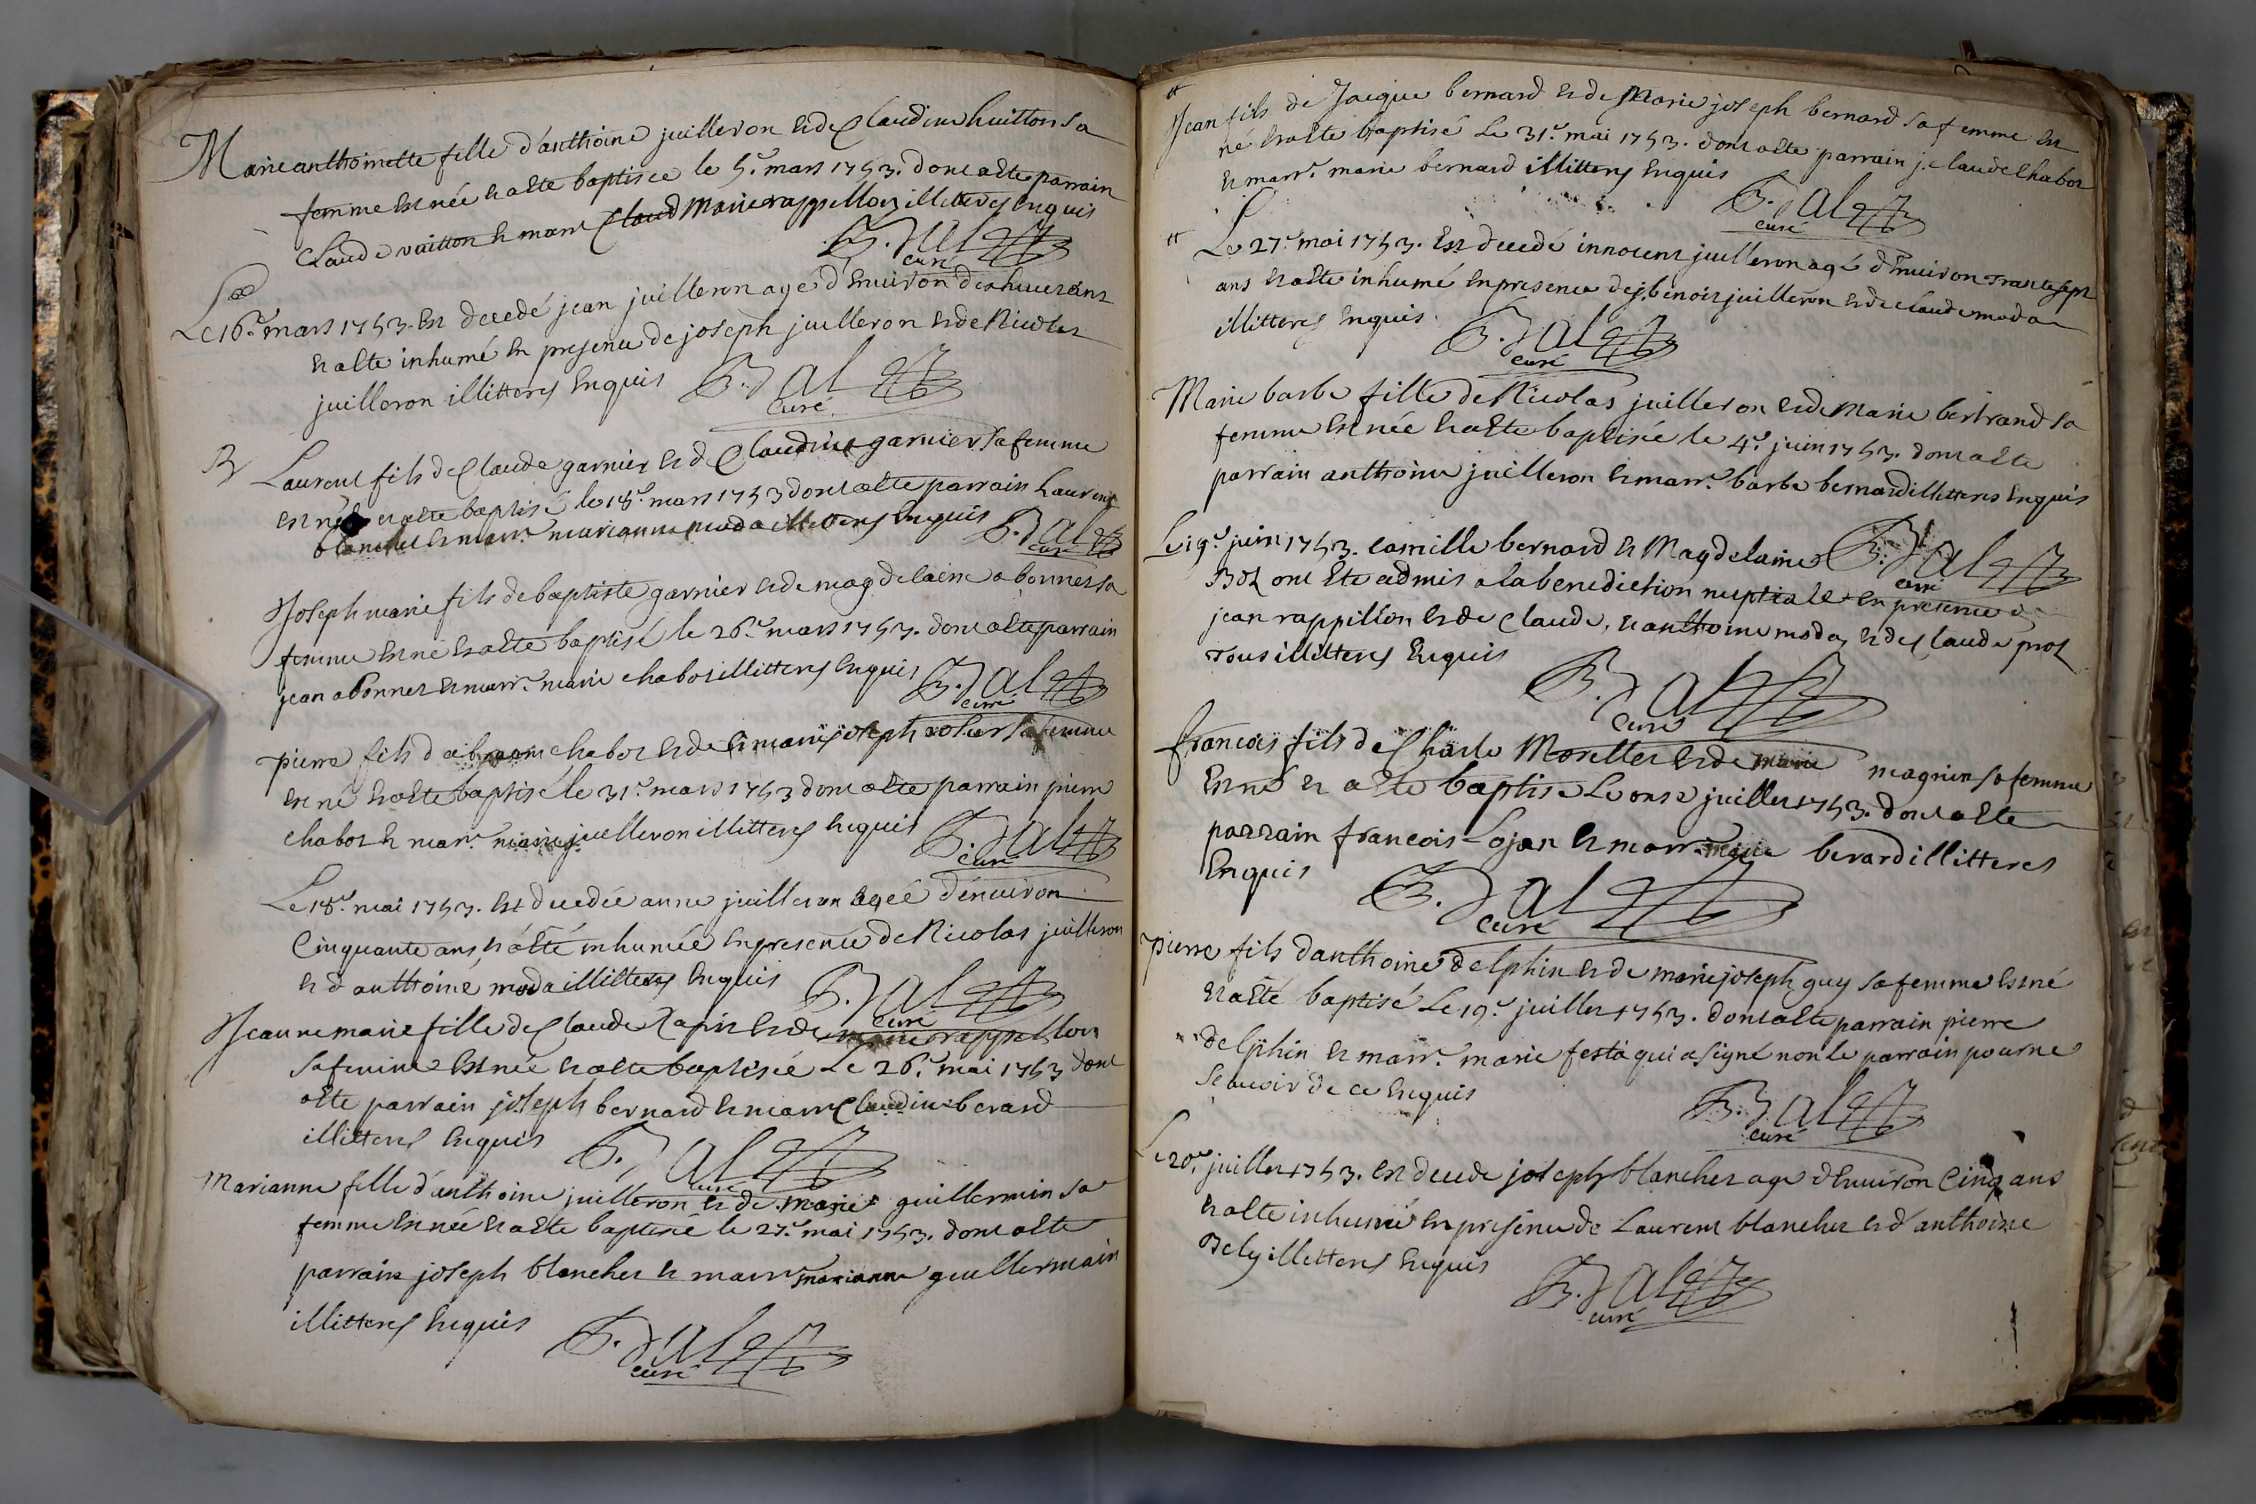 Marie anthoinette fille d'anthoine juilleron et de Claudine huitton sa
femme est née et a esté baptisee le 5.e mars 1753. dont a esté parrain
Claude vuitton et marr Marie rappillon illitteres enquis
B. Dal
curé
Le 16.e mars 1753. est decedé jean juilleron agé d'environ
et a esté inhumé en presence de joseph juilleron et de Nicolas
juilleron illitteres enquis B. Dal
curé
Laurent fils de Claude garnier et de Claudine garnier sa femme
est né et a esté baptisé le 18.e mars 1753 dont a esté parrain Laurent
blanchet et marr.e marianne moda illitteres enquis B. Dal
curé
Joseph marie fils de baptiste garnier et de magdelaine abonnet sa
femme est né et a esté baptisé le 26.e mars 1753. dont a esté parrain
jean abonnet et marr.e marie chabot illitteres enquis B. Dal
curé
pierre fils d'abraam chabot et de marie joseph sa femme
est né et a esté baptisé le 31.e mars 1753 dont a esté parrain pierre
chabot et marr.e marie juilleron illitteres enquis B. Dal
curé
Le 18.e mai 1753. est decedée anne juilleron ageé d'environ
Cinquante ans, et a esté inhumée en presence de Nicolas juilleron
et d'anthoine moda illitteres enquis B. Dal
curé
Jeanne marie fille de Claude et de marie rappillon
sa femme est née et a esté baptisée Le 26.e mai 1753 dont
esté parrain joseph bernard et marr Claudine berard
illitteres enquis B. Dal
curé
Marianne fille d'anthoine juilleron et de marie guillermin sa
femme est née et a esté baptisé le 27.e mai 1753. dont a esté
parrain joseph blanchet et marr marianne guillermain
illitteres enquis B. Dal
curé
Jean fils de Jacque bernard et de Marie joseph bernard sa femme est
né et a esté baptisé Le 31.e mai 1753. dont a esté parrain j. claude Chabot
et marr.e marie bernard illitteres enquis B. Dal
curé
Le 27.e mai 1753. est decedé innocent juilleron agé d'environ trante sept
ans et a esté inhumé en presence de j. benoit juilleron et de claude moda
illitteres enquis. B. Dal
curé
Marie barbe fille de Nicolas juilleron et de Marie bertrand sa
femme est née et a esté baptisée le 4.e juin 1753. dont a esté
parrain anthoine juilleron et marr.e barbe bernard illitteres enquis
B. Dal
curé
Le 19.e juin 1753. camille bernard et Magdelaine
ont esté admis a la benediction nuptiale en presence de
jean rappillon et de Claude, et anthoine moda, et de Claude prot
tous illitteres enquis B. Dal
curé
francois fils de Charle Morellet et de marie magnin sa femme
est né et a esté baptisé Le onse juillet 1753. dont a esté
parrain francois Lojan et marr marie berard illitteres
enquis B. Dal
curé
pierre fils d'anthoine delphin et de marie joseph guy sa femme est né
et a esté baptisé Le 19.e juillet 1753. dont a esté parrain pierre
delphin et marr.e marie festa qui a signé non le parrain pour ne
scavoir de ce enquis B. Dal
curé
Le 20.e juillet 1753. est decede joseph blanchet age d'environ Cinq ans
et a esté inhumé en presence de Laurent blanchet et d'anthoine
illitteres enquis B. Dal
curé